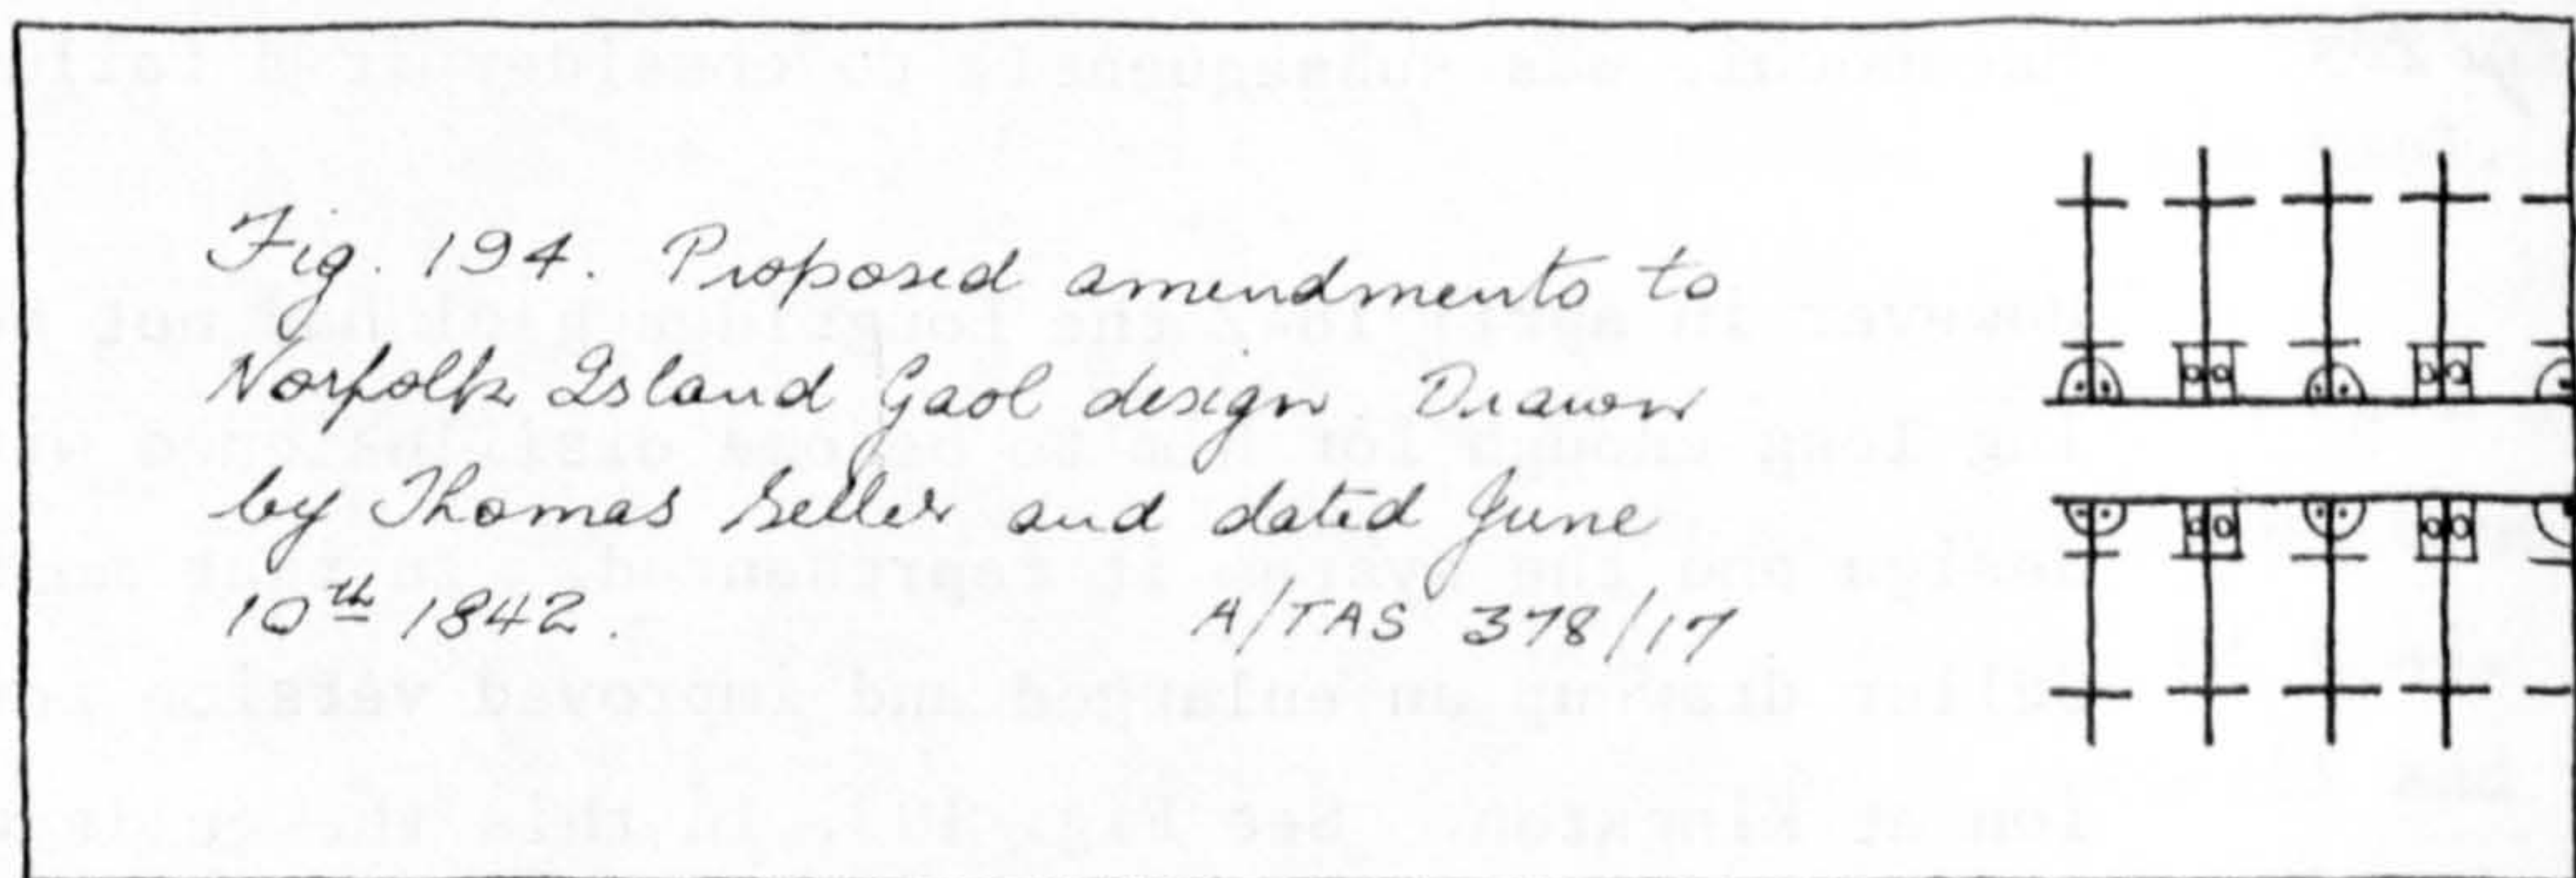 Fig. 194. Proposed amendments to
Norfolk Island Gaol design. Drawn
by Thomas Seller and dated June
10th 1842. A/TAS 378/17